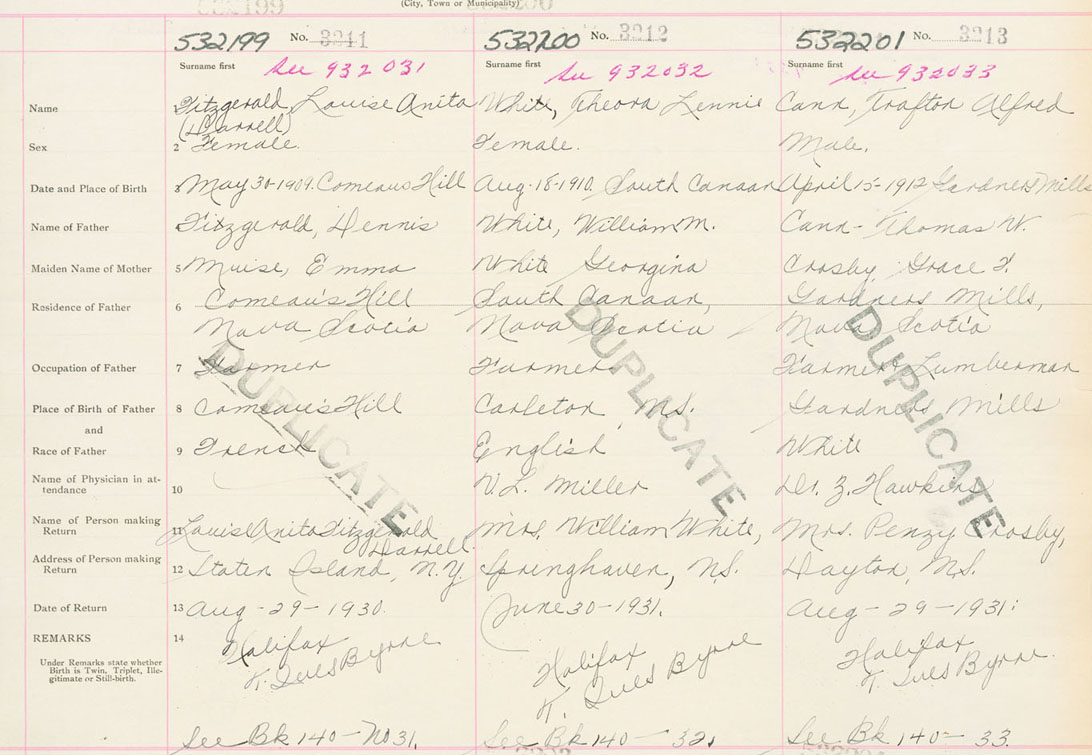 532199
(City, Town or Municipality)
532199 No. 3211 532200 No. 3212 532201 No. 3213
Surname first Surname first Surname first
See 932031 See 932032 See 932033
Name Fitzgerald, Louise Anita White, Theora Lennie Cann, Trafton Alfred
(Darrell)
Sex 2 Female. Female. Male.
Date and Place of Birth 3 May 30-1909. Comeaus Hill Aug-18-1910. South Canaan April 15-1912 Gardners Mills
Name of Father Fitzgerald, Dennis White, William M. Cann-Thomas W.
Maiden Name of Mother 5 Muise, Emma White Georgina Crosby Grace F.
Residence of Father 6 Comeau's Hill South Canaan, Gardners Mills,
Nova Scotia Nova Scotia Nova Scotia
DUPLICATE DUPLICATE DUPLICATE
Occupation of Father 7 Farmer Farmer Farmer Lumberman
Place of Birth of Father 8 Comeau's Hill Carleton, N.S. Gardners Mills
and
Race of Father 9 French English White
Name of Physician in at-
tendance 10 V.L. Miller Dr. Z. Hawkins
Name of Person making
Return 11 Louise Anita Fitzgerald Mrs. William White, Mrs. Penzy Crosby,
Darrell.
Address of Person making
Return 12 Staten Island, N.Y. Springhaven, N.S. Dayton, N.S.
Date of Return 13 Aug-29-1930. June 30-1931. Aug-29-1931.
REMARKS 14 Halifax Halifax Halifax
Under Remarks state whether
Birth is Twin, Triplet, Ille-
gitimate or Still-birth.
Byrne Byrne Byrne.
See Bk 140-No 31. See Bk 140-32. See Bk 140-33